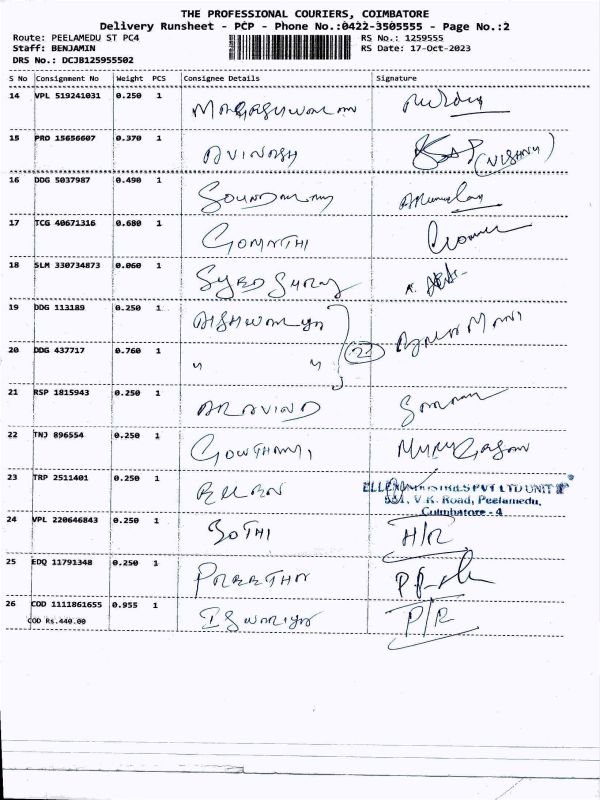 THE PROFESSIONAL COURIERS, COIMBATORE
Delivery Runsheet - PCP - Phone No.:0422-3505555 - Page No.:2
Route: PEELAMEDU ST PC4
RS No.: 1259555
Staff: BENJAMIN
RS Date: 17-Oct-2023
DRS No.: DCJB125955502
S No Consignment No Weight PCS Consignee Details Signature
14 VPL 519241031 0.250 1
15 PRO 15656607 0.370 1 AVINASH (VISHNU)
16 DDG 5037987 0.490 1
17 TCG 40671316 0.680 1 GOMATHI
18 SLM 330734873 0.060 1
19 DDG 113189 0.250 1 AISHWARYA
20 DDG 437717 0.760 1 " "
21 RSP 1815943 0.250 1 ARAVIND
22 TNJ 896554 0.250 1 GOWTHAMI
23 TRP 2511401 0.250 1 UNIT
V.K. Road, Peelamedu,
Coimbatore - 4
24 VPL 220646843 0.250 1 BOTHI H/R
25 EDQ 11791348 0.250 1 PREETHA
26 COD 1111861655 0.955 1 ISWARIYA P/R
COD Rs.440.00